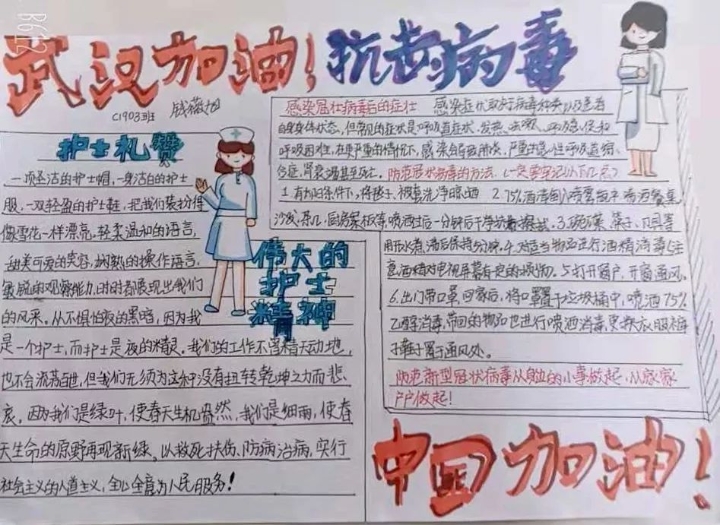 武汉加油！抗击病毒
C1903班
护士礼赞
一顶圣洁的护士帽，一身洁白的护士
服，一双轻盈的护士鞋，把我们装扮得
像雪花一样漂亮，轻柔温和的语言，
甜美可爱的笑容，娴熟的操作语言，
敏锐的观察能力，时时都展现出我们
的风采，从不惧怕夜的黑暗，因为我
是一个护士，而护士是夜的精灵。我们的工作不曾惊天动地，
也不会流芳百世，但我们无须为这种没有扭转乾坤之力而悲
哀，因为我们是绿叶，使春天生机盎然，我们是细雨，使春
天生命的原野再现新绿。以救死扶伤、防病治病，实行
社会主义的人道主义，全心全意为人民服务！
伟大的
护士
精神
感染冠壮病毒后的症壮 感染症状取决病毒种类以及患者
自身身体状态，但常见的症状是呼吸道症状、发热、咳嗽、呼吸急促和
呼吸困难，在更严重的情况下，感染会导致肺炎、严重急性呼吸道综
合症，肾衰竭甚至死亡。防范冠状病毒的方法，（一定要牢记以下几点）
1.有太阳条件下，将被子、被套洗净晾晒 2.75%酒精倒入喷壶瓶中喷洒餐桌、
沙发、茶几、厨房案板等，喷洒过后一分钟后干净抹布擦拭。3.碗筷、筷子、刀具等
用开水煮，沸后保持5分钟。4.对适当物品进行酒精消毒（注
意酒精对电视屏幕有一定的损伤）。5.打开窗户，开窗通风。
6.出门带口罩，回家后，将口罩置于垃圾桶中，喷洒75%
乙醇消毒，带回的物品也进行喷洒消毒，更换衣服裤
子鞋子置于通风处。
防范新型冠状病毒从身边的小事做起，从家家
户户做起！
中国加油！